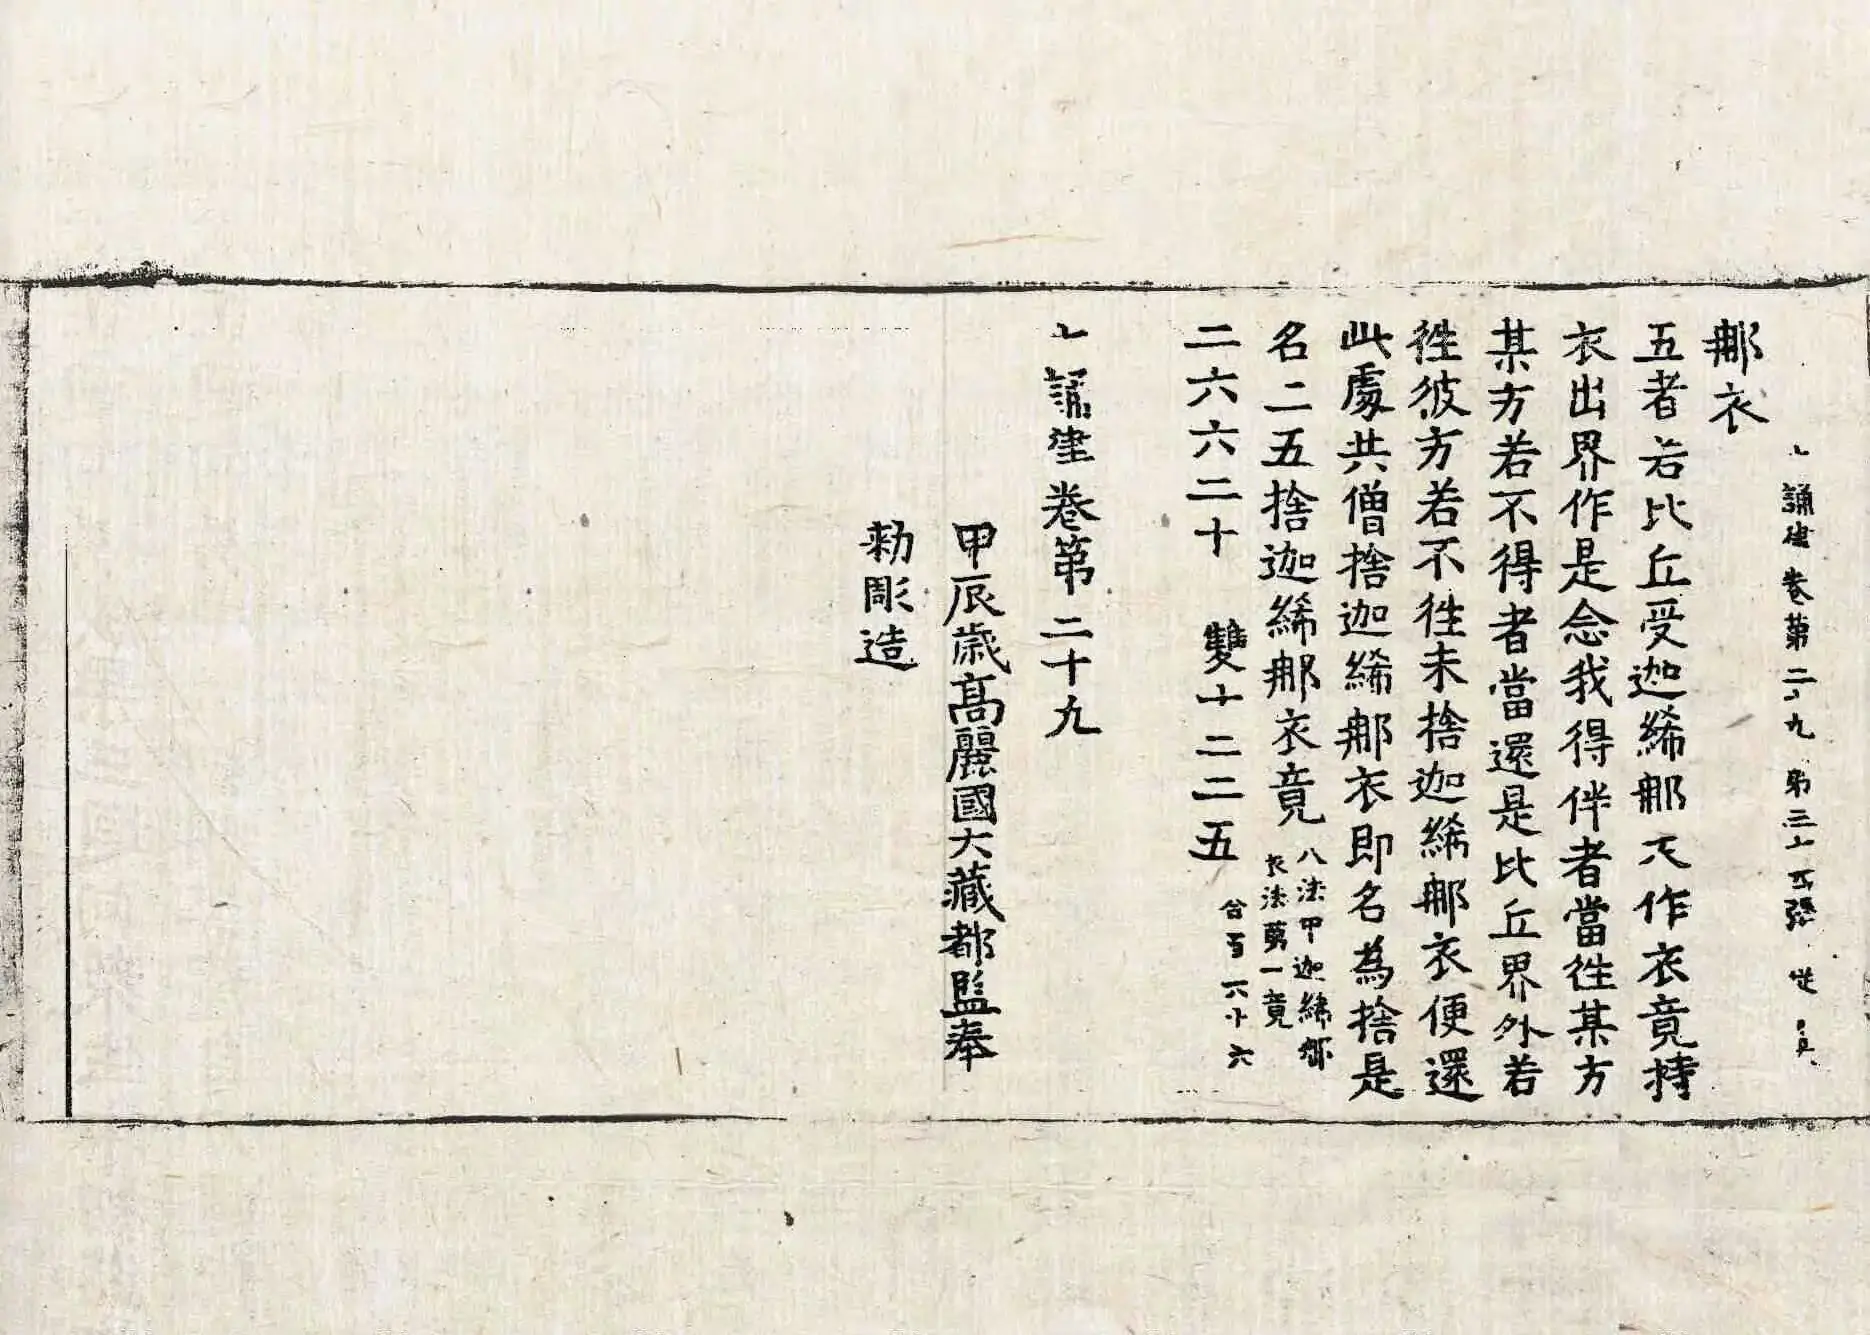 誦律卷第二十九 第三十五張
那衣
五者若比丘受迦絺那衣作衣竟持
衣出界作是念我得伴者當往某方
某方若不得者當還是比丘界外若
往彼方若不往未捨迦絺那衣便還
此處共僧捨迦絺那衣即名為捨是
名二五捨迦絺那衣竟 八法中迦絺那
衣法第一竟
二六六二十 雙十二二五 合百六十六
誦律卷第二十九
甲辰歲高麗國大藏都監奉
勅彫造